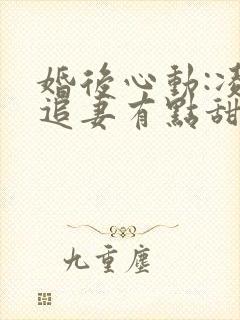 婚後心動:凌
追妻有點甜
九重塵